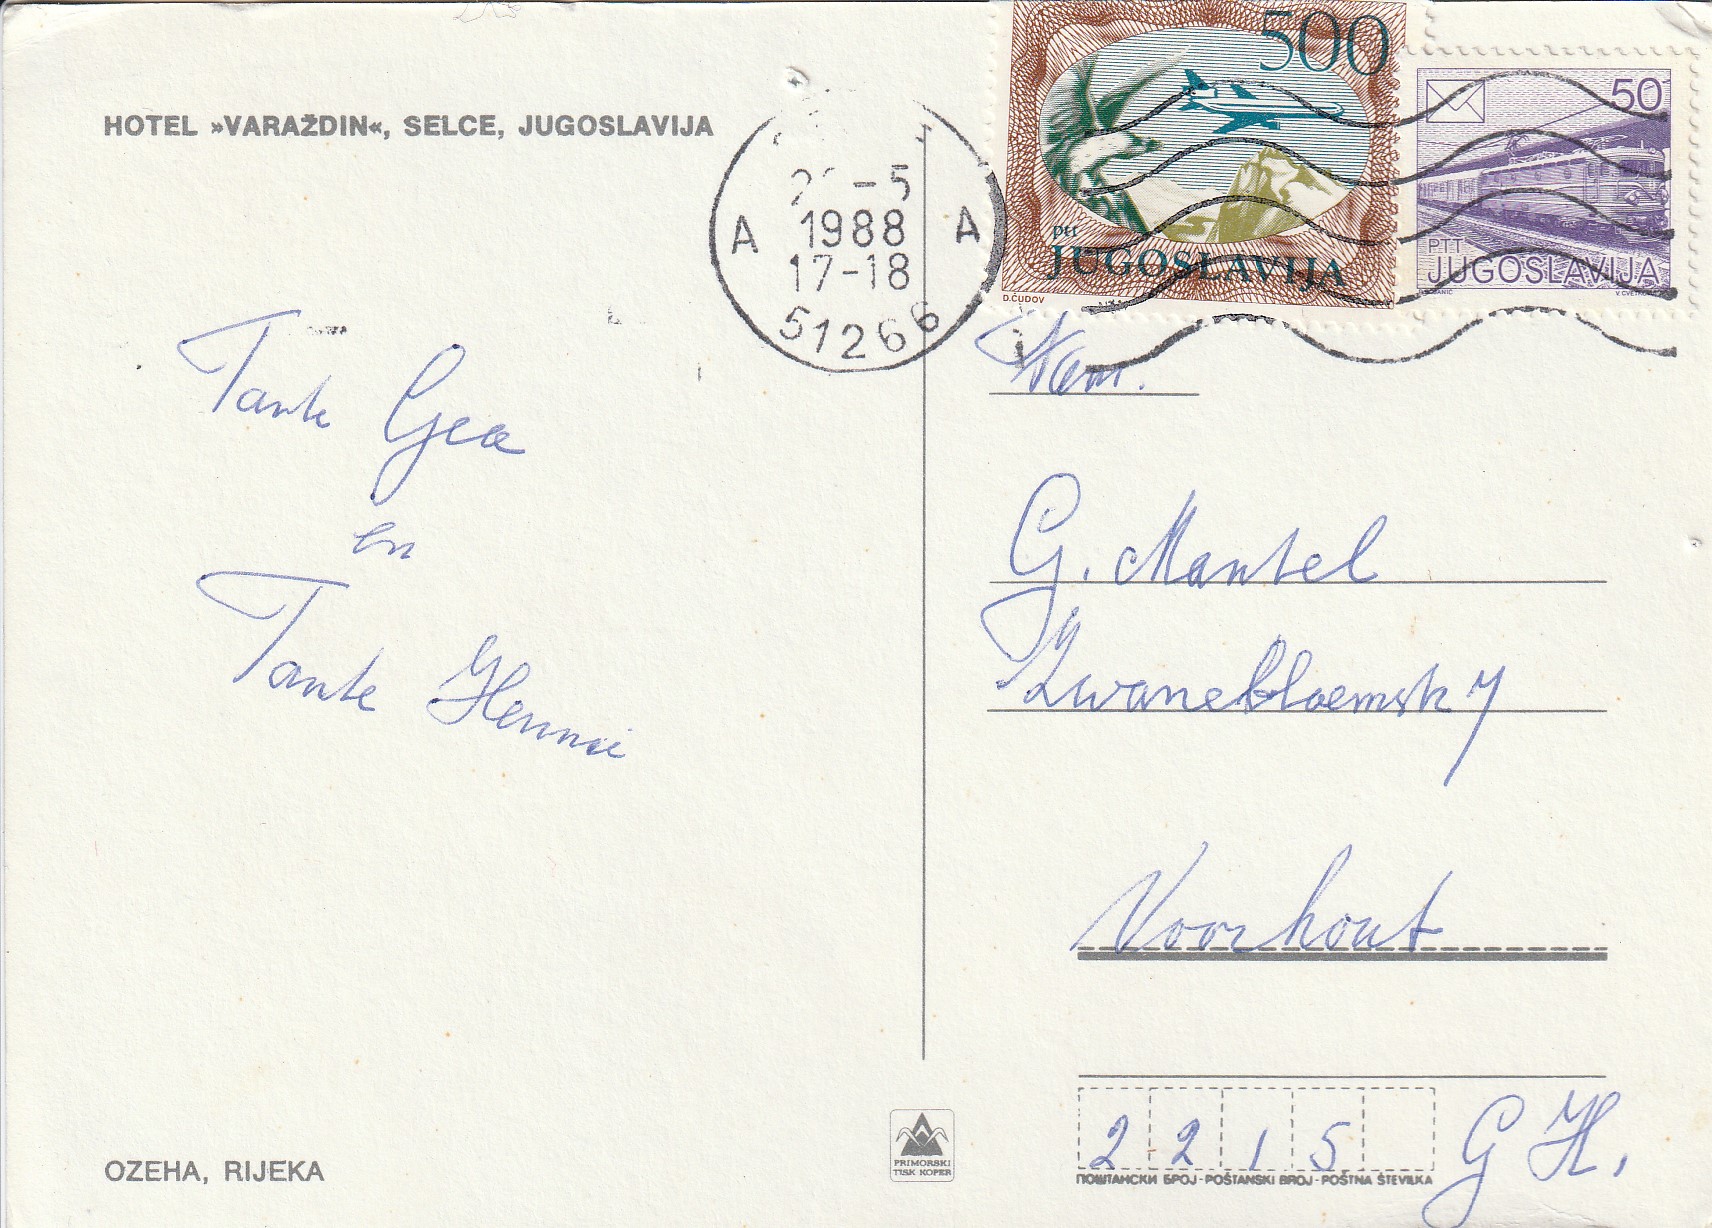 HOTEL »VARAŽDIN«, SELCE, JUGOSLAVIJA
-5
1988
17-18
A A
51266
500
ptt
JUGOSLAVIJA
D.ČUDOV
50
PTT
JUGOSLAVIJA
Tante Gea
en
Tante Hennie
Fam.
G. Mantel
Zwanebloemstr 7
Voorhout
2215 GH.
ПОШТАНСКИ БРОЈ - POŠTANSKI BROJ - POŠTNA ŠTEVILKA
PRIMORSKI
TISK KOPER
OZEHA, RIJEKA